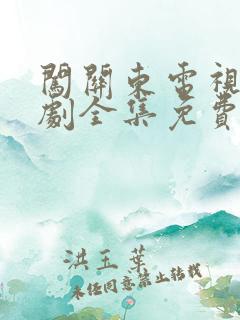 闖關東電視
劇全集免費
洪玉葉
未经同意禁止转载